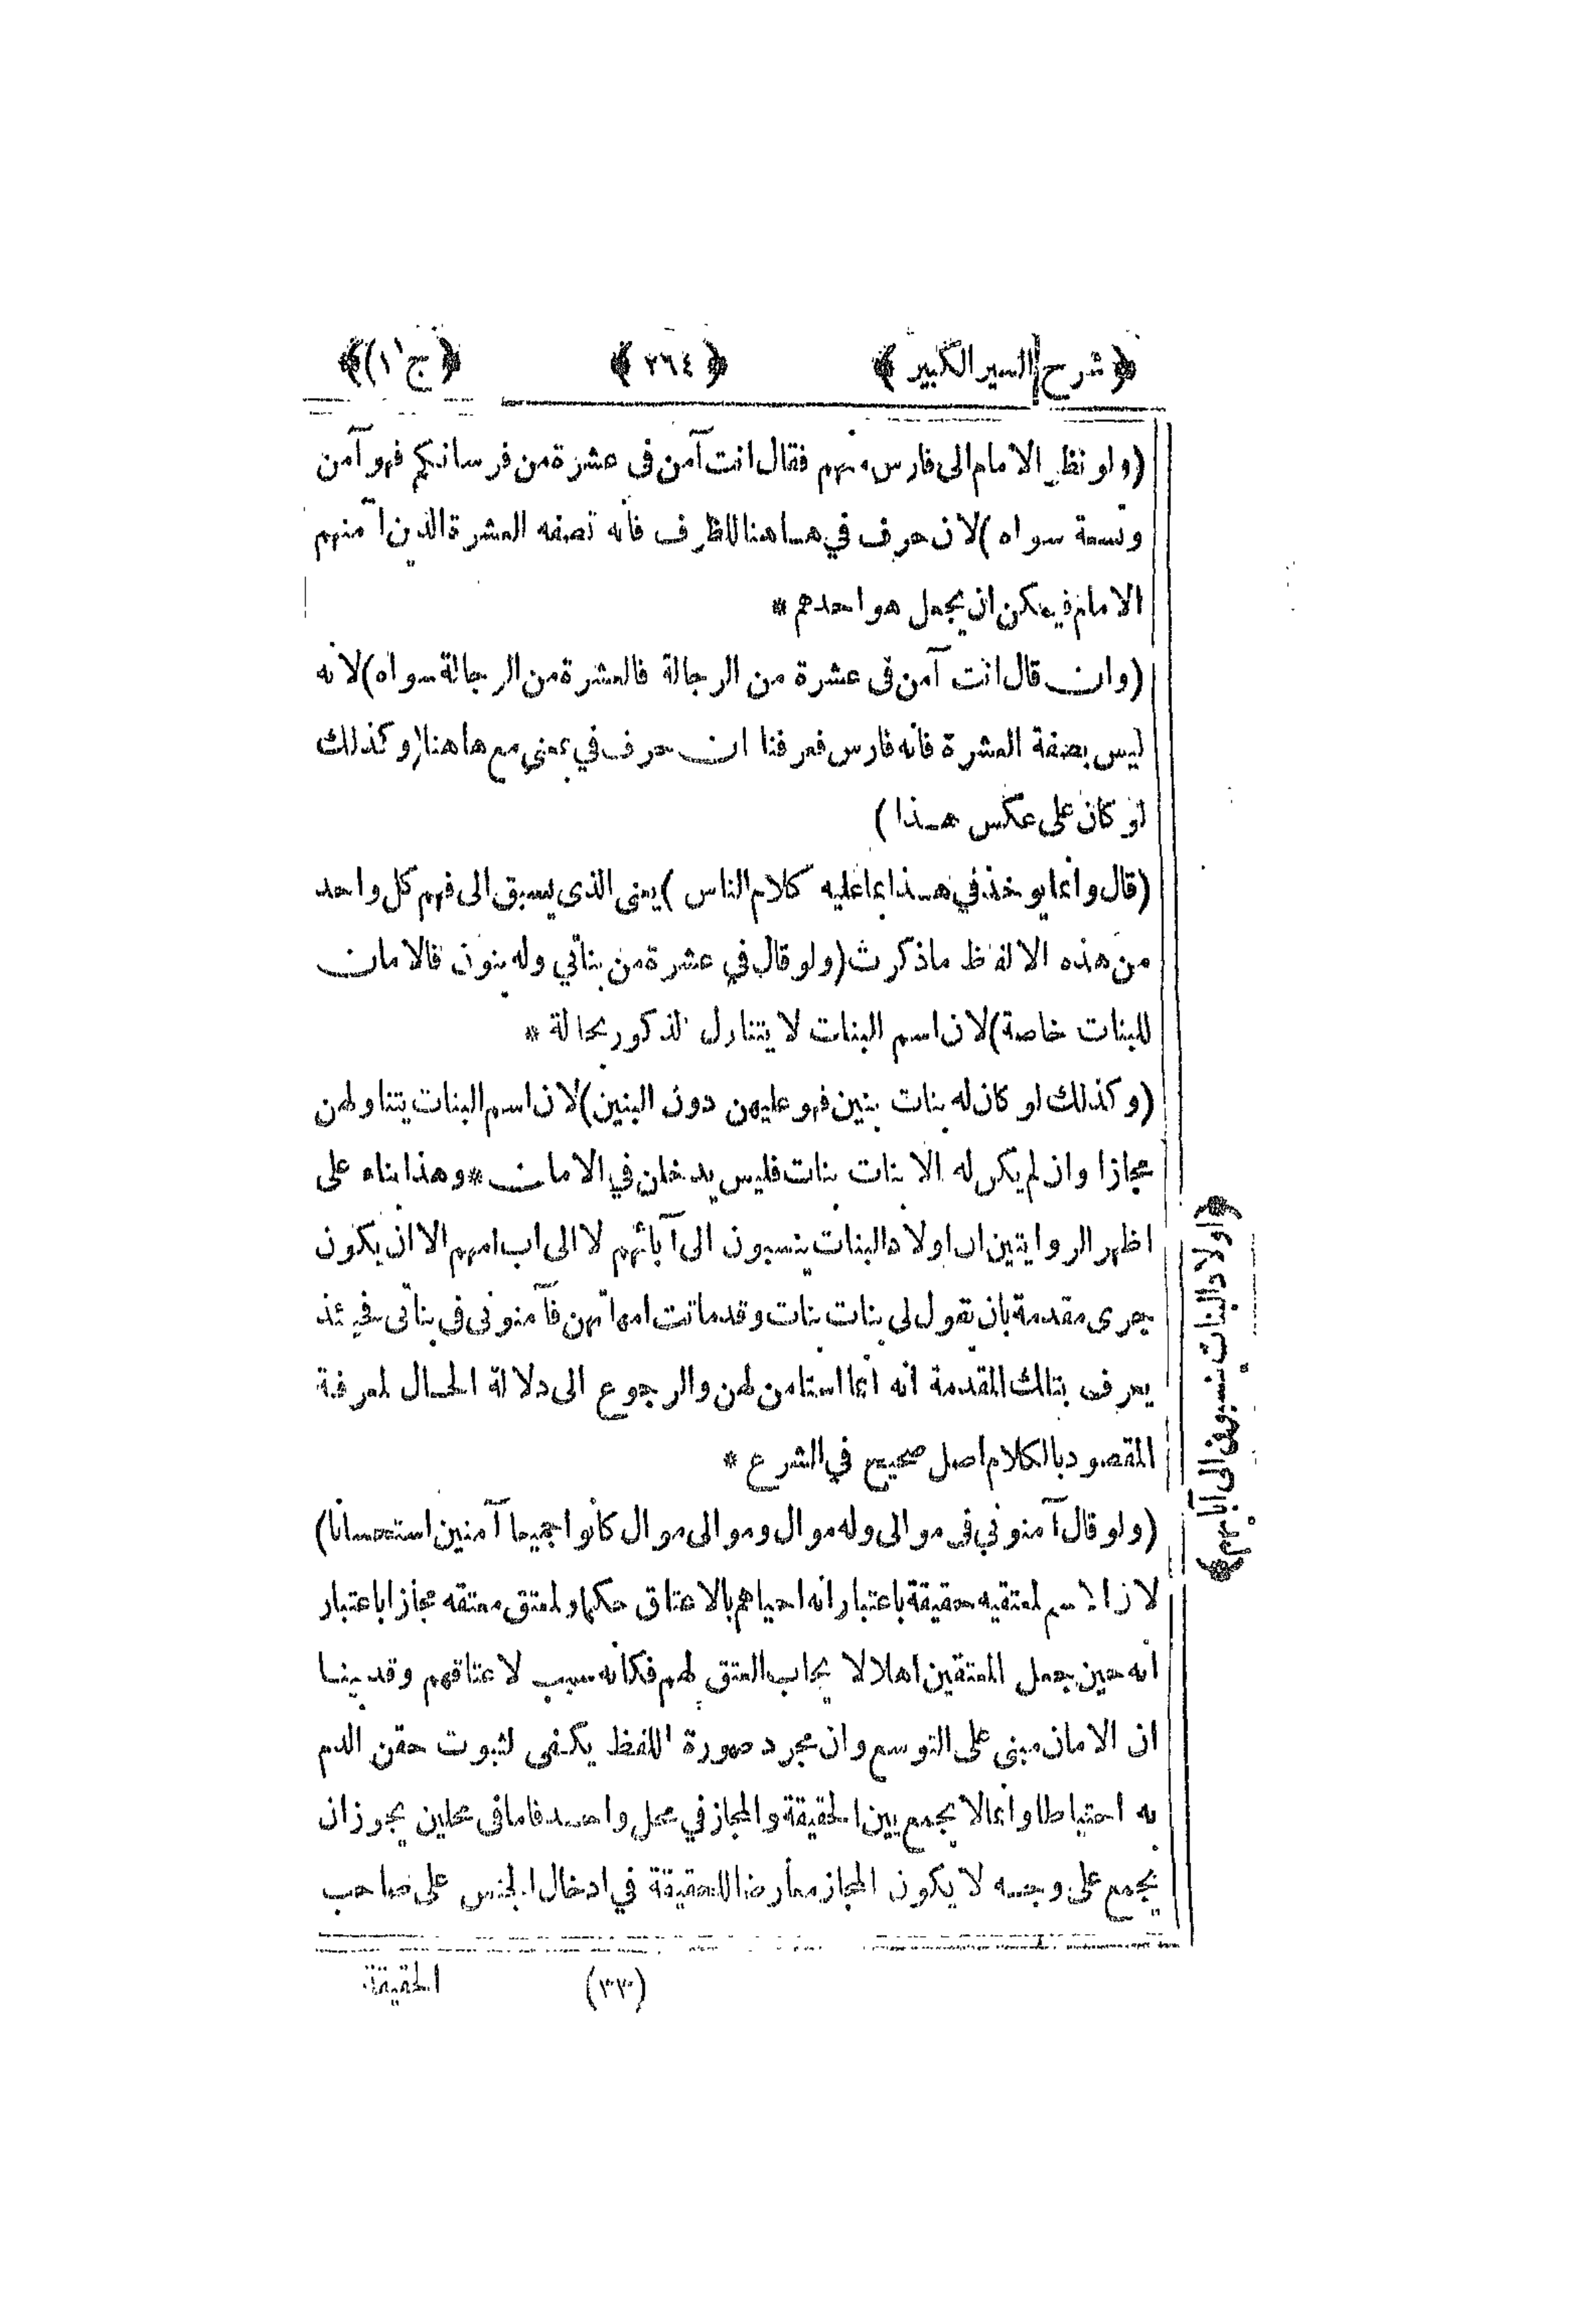 ﴿ شرح السير الكبير ﴾ ﴿ ٢٦٤ ﴾ ﴿ ج (١) ﴾
(ولو نظر الامام الى فارس منهم فقال انت آمن فى عشرة من فرسانكم فهو آمن
وتسعة سواه) لان حرف في هاهنا للظرف فانه تصفه العشرة الذين آمنهم
الامام فيمكن ان يجعل هو احدهم *
(وان قال انت آمن فى عشرة من الرجالة فالعشرة من الرجالة سواه) لانه
ليس بصفة العشرة فانه فارس فعرفنا ان حرف في بمعنى مع هاهنا (وكذلك
لو كان على عكس هذا)
(قال وانما يوخذ في هذا بما عليه كلام الناس) يعنى الذى يسبق الى فهم كل واحد
من هذه الالفاظ ما ذكرت (ولو قال في عشرة من بناتي وله بنون فالامان
للبنات خاصة) لان اسم البنات لا يتناول الذكور بحالة *
(وكذلك لو كان له بنات بنين فهو عليهن دون البنين) لان اسم البنات يتناولهن
مجازا وان لم يكن له الا بنات بنات فليس يدخلن في الامان * وهذا بناء على
اظهر الروايتين ان اولاد البنات ينسبون الى آبائهم لا الى اب امهم الا ان يكون
يجرى مقدمة بان تقول لى بنات بنات وقد ماتت امهاتهن فآمنونى فى بناتى فحينئذ
يعرف بتلك المقدمة انه انما استامن لهن والرجوع الى دلالة الحال لمعرفة
المقصود بالكلام اصل صحيح في الشرع *
(ولو قال آمنوني فى موالى وله موال وموالى موال كانوا جميعا آمنين استحسانا)
لان الاسم لمعتقيه حقيقة باعتبار انه احياهم بالاعتاق حكما ولمعتق معتقه مجازا باعتبار
انه حين جعل المعتقين اهلا لايجاب العتق لهم فكانه سبب لاعتاقهم وقد بينا
ان الامان مبنى على التوسع وان مجرد صورة اللفظ يكفى لثبوت حقن الدم
به احتياطا وانما لا يجمع بين الحقيقة والمجاز في محل واحد فاما فى محلين يجوز ان
يجمع على وجه لا يكون المجاز معارضا للحقيقة في ادخال الجنس على صاحب
(٣٣) الحقيقة
﴿اولاد البنات ينسبون الى آبائهم﴾